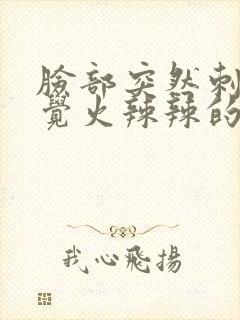 臉部突然刺
覺火辣辣的
我心飛揚